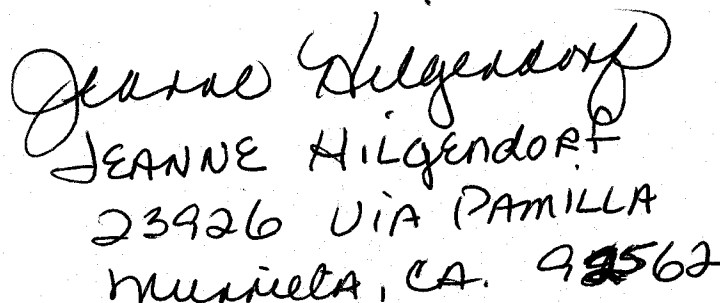 Jeanne Hilgendorf
JEANNE HILGENDORF
23926 VIA PAMILLA
Murrieta, CA. 92562